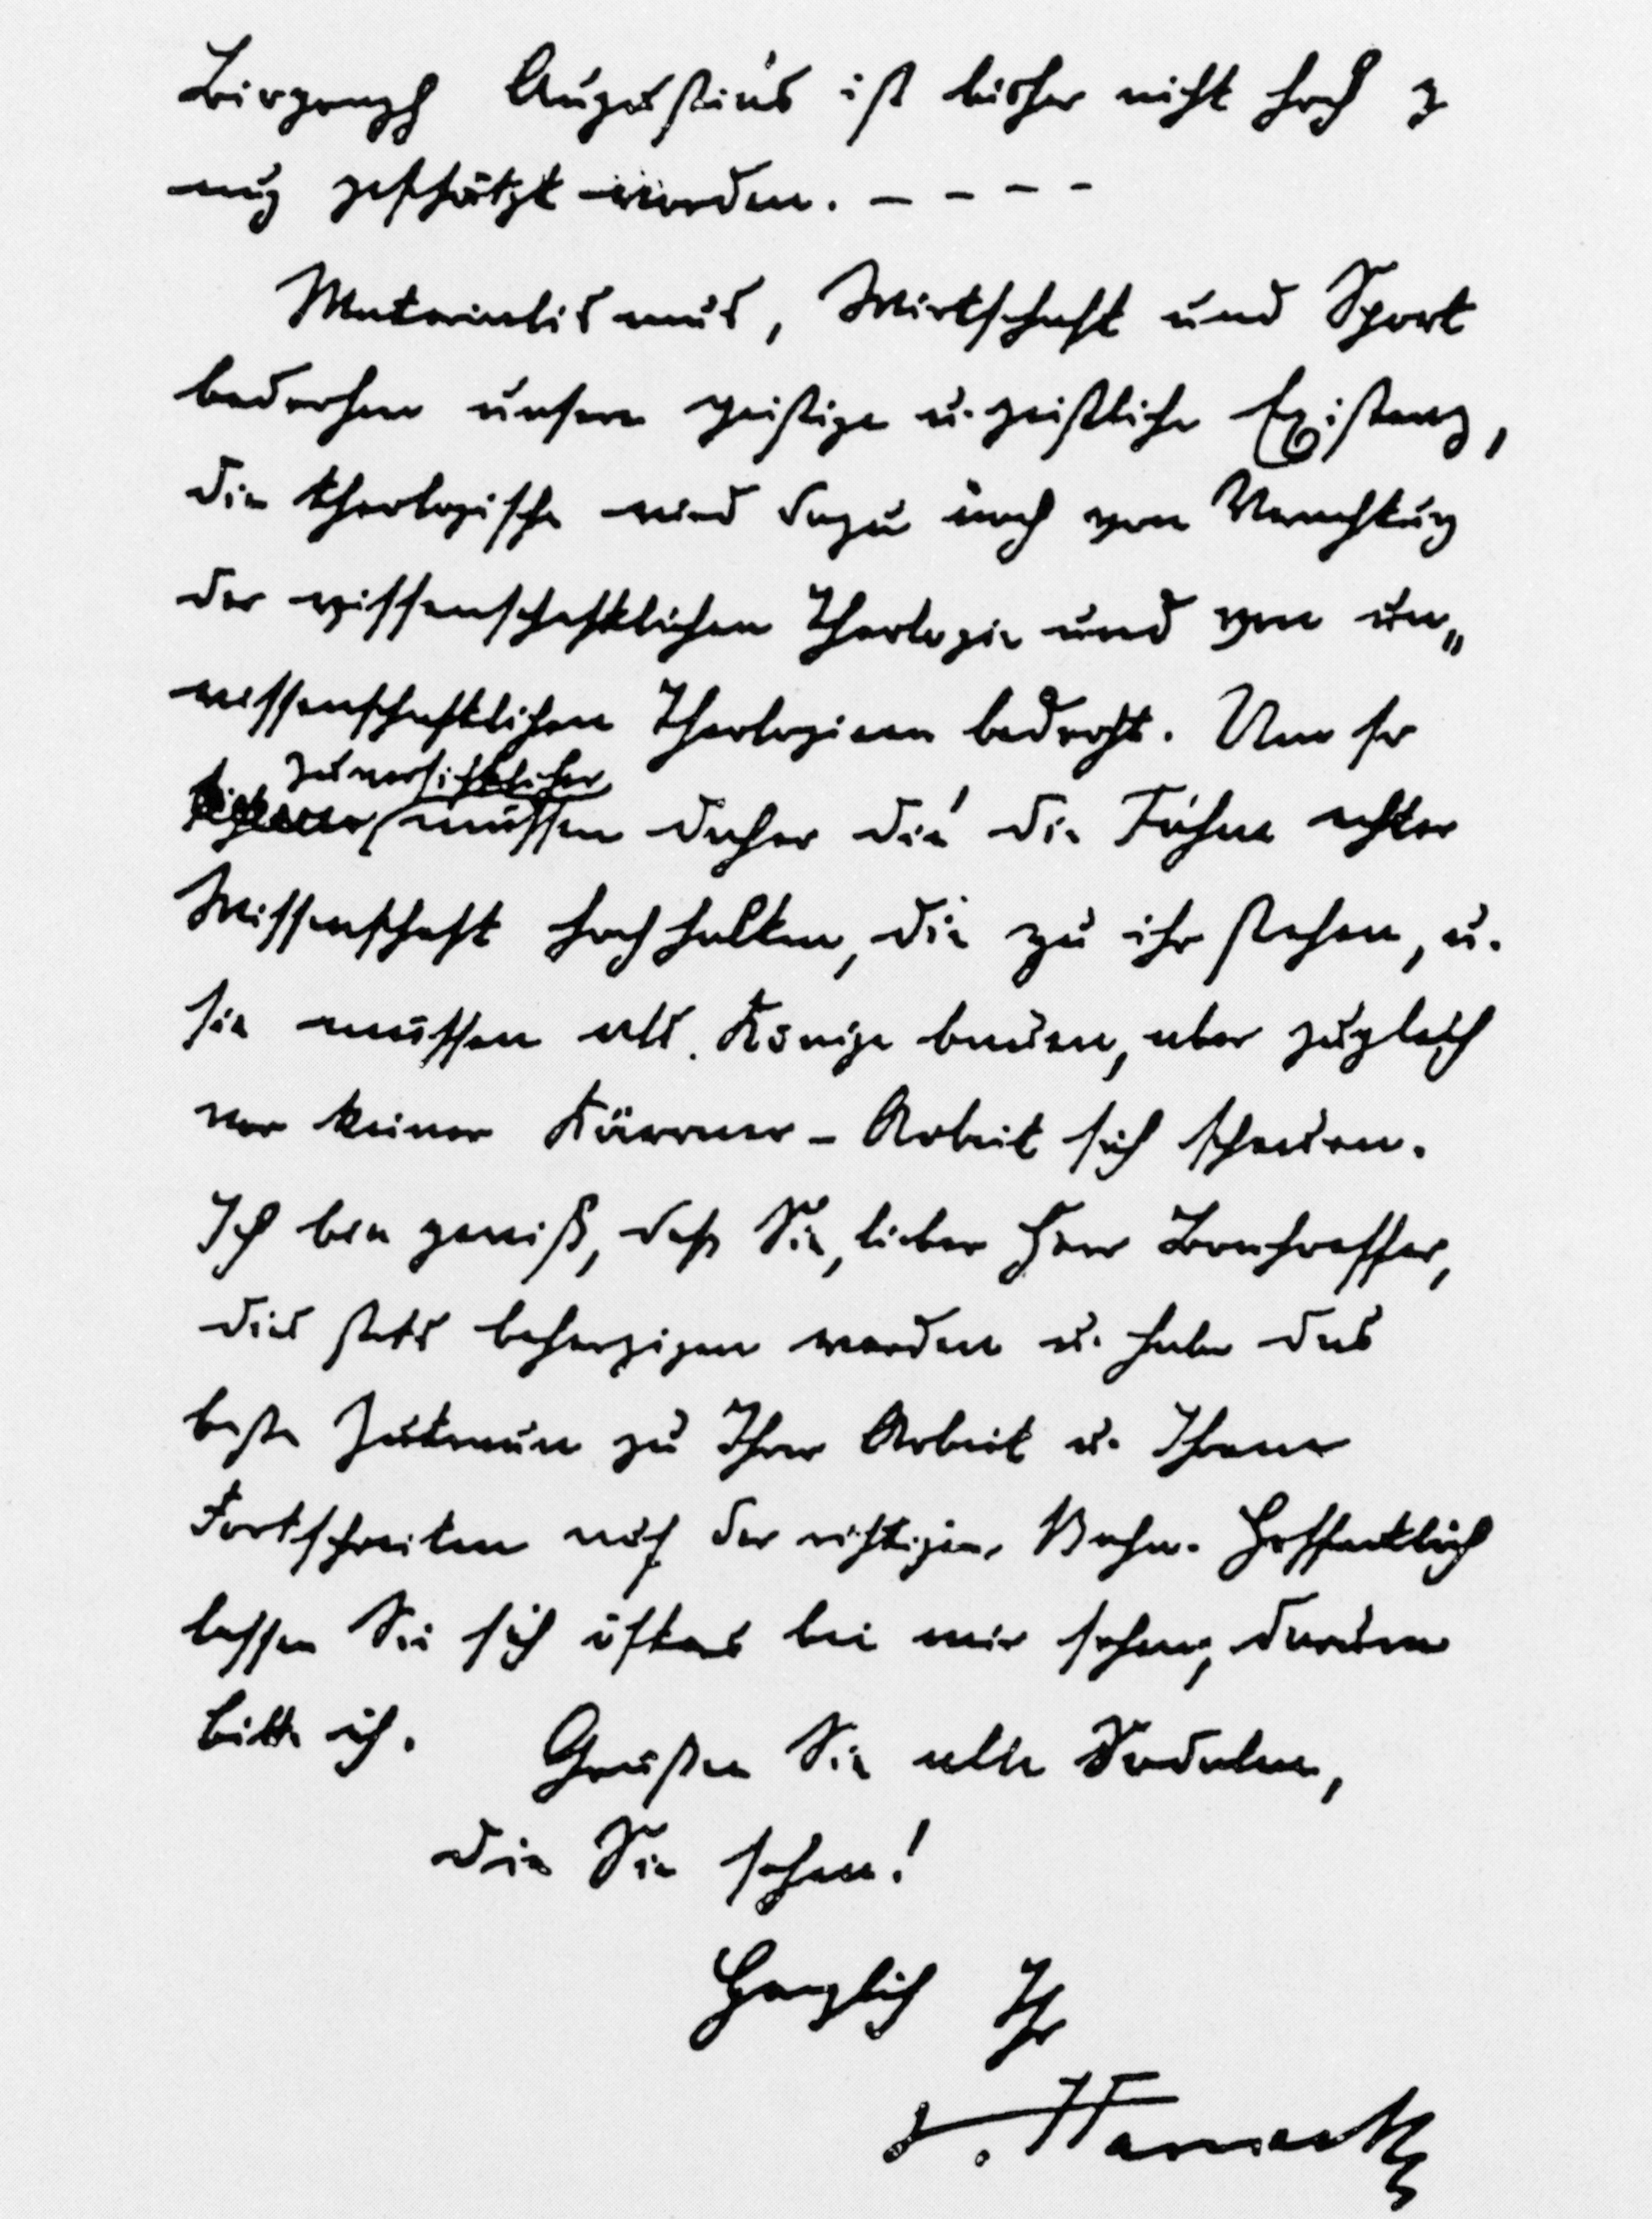 Biograph Augustins ist bisher nicht hoch g
nug geschätzt worden. – – – –
Materialismus, Wirtschaft und Sport
bedrohen unsere geistige u. geistliche Existenz,
die theologische wird dazu noch von Verachtung
der wissenschaftlichen Theologie und von un„
wissenschaftlichen Theologieen bedroht. Um so
zuversichtlicher
müssen daher die die Fahne echter
Wissenschaft hoch halten, die zu ihr stehen, u.
sie müssen als Könige bauen, aber zugleich
vor keiner Kärrner-Arbeit sich scheuen.
Ich bin gewiß, daß Sie, lieber Herr Bonhoeffer,
dies stets beherzigen werden u. habe das
beste Zutrauen zu Ihrer Arbeit u. Ihrem
Fortschreiten auf der richtigen Bahn. Hoffentlich
lassen Sie sich öfters bei mir sehen; darum
bitte ich. Grüßen Sie alle Sodalen,
die Sie sehen!
Herzlich Ihr
v. Harnack